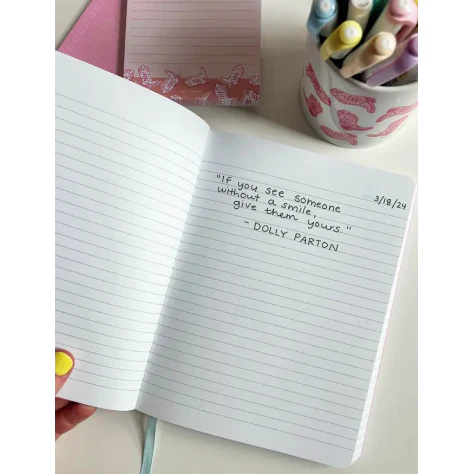 3/18/24
"If you see someone
without a smile,
give them yours."
- DOLLY PARTON